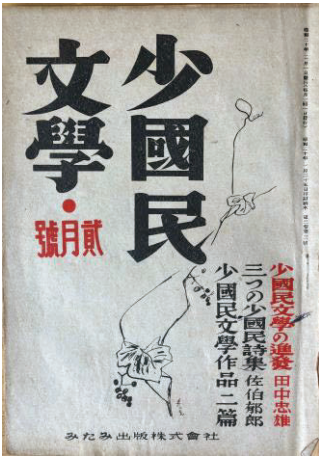 少國民
文學・
貳月號
少國民文學の進發 田中忠雄
三つの少國民詩集 佐伯郁郎
少國民文學作品二篇
みたみ出版株式會社